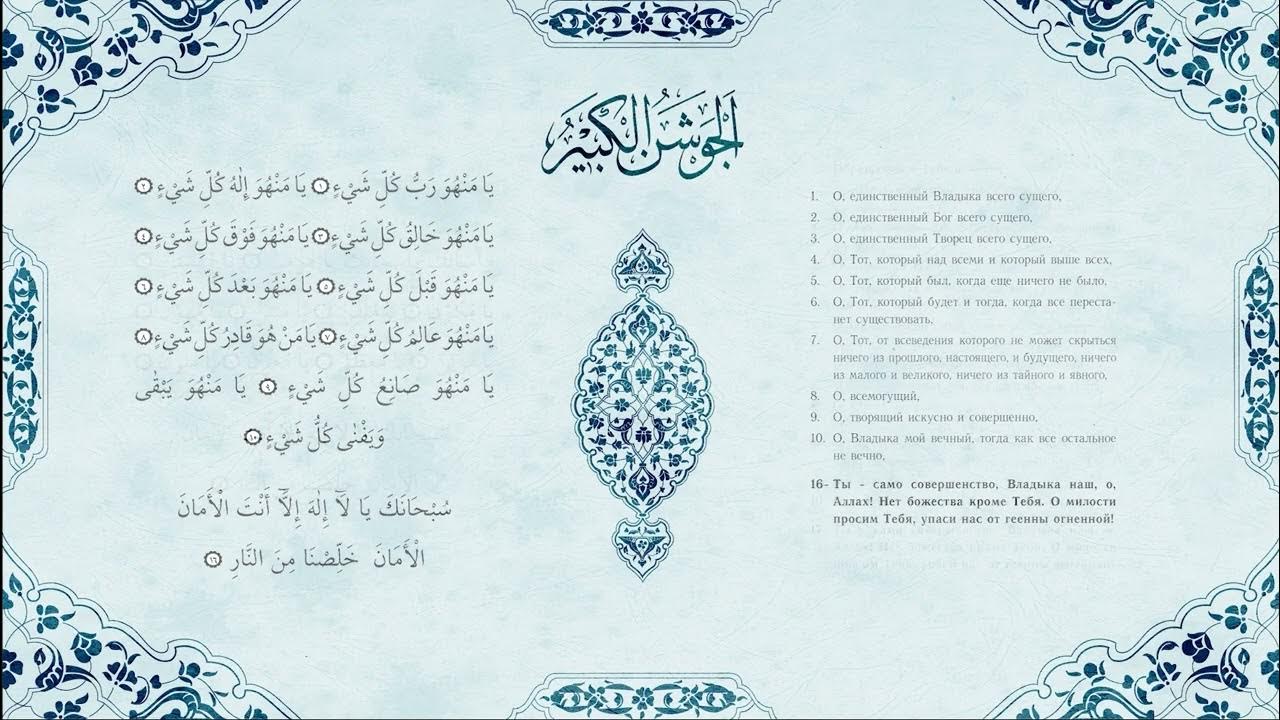 اَلْجَوْشَنُ الْكَبِيْرُ
يَا مَنْهُوَ رَبُّ كُلِّ شَيْءٍ ١ يَا مَنْهُوَ إِلٰهُ كُلِّ شَيْءٍ ٢
يَا مَنْهُوَ خَالِقُ كُلِّ شَيْءٍ ٣ يَا مَنْهُوَ فَوْقَ كُلِّ شَيْءٍ ٤
يَا مَنْهُوَ قَبْلَ كُلِّ شَيْءٍ ٥ يَا مَنْهُوَ بَعْدَ كُلِّ شَيْءٍ ٦
يَا مَنْهُوَ عَالِمُ كُلِّ شَيْءٍ ٧ يَا مَنْ هُوَ قَادِرُ كُلِّ شَيْءٍ ٨
يَا مَنْهُوَ صَانِعُ كُلِّ شَيْءٍ ٩ يَا مَنْهُوَ يَبْقٰى
وَيَفْنٰى كُلُّ شَيْءٍ ١٠
سُبْحَانَكَ يَا لَآ إِلٰهَ إِلَّآ أَنْتَ الْأَمَانَ
الْأَمَانَ خَلِّصْنَا مِنَ النَّارِ ١٦
1. О, единственный Владыка всего сущего,
2. О, единственный Бог всего сущего,
3. О, единственный Творец всего сущего,
4. О, Тот, который над всеми и который выше всех,
5. О, Тот, который был, когда еще ничего не было,
6. О, Тот, который будет и тогда, когда все переста-
нет существовать,
7. О, Тот, от всеведения которого не может скрыться
ничего из прошлого, настоящего, и будущего, ничего
из малого и великого, ничего из тайного и явного,
8. О, всемогущий,
9. О, творящий искусно и совершенно,
10. О, Владыка мой вечный, тогда как все остальное
не вечно,
16- Ты - само совершенство, Владыка наш, о,
Аллах! Нет божества кроме Тебя. О милости
просим Тебя, упаси нас от геенны огненной!